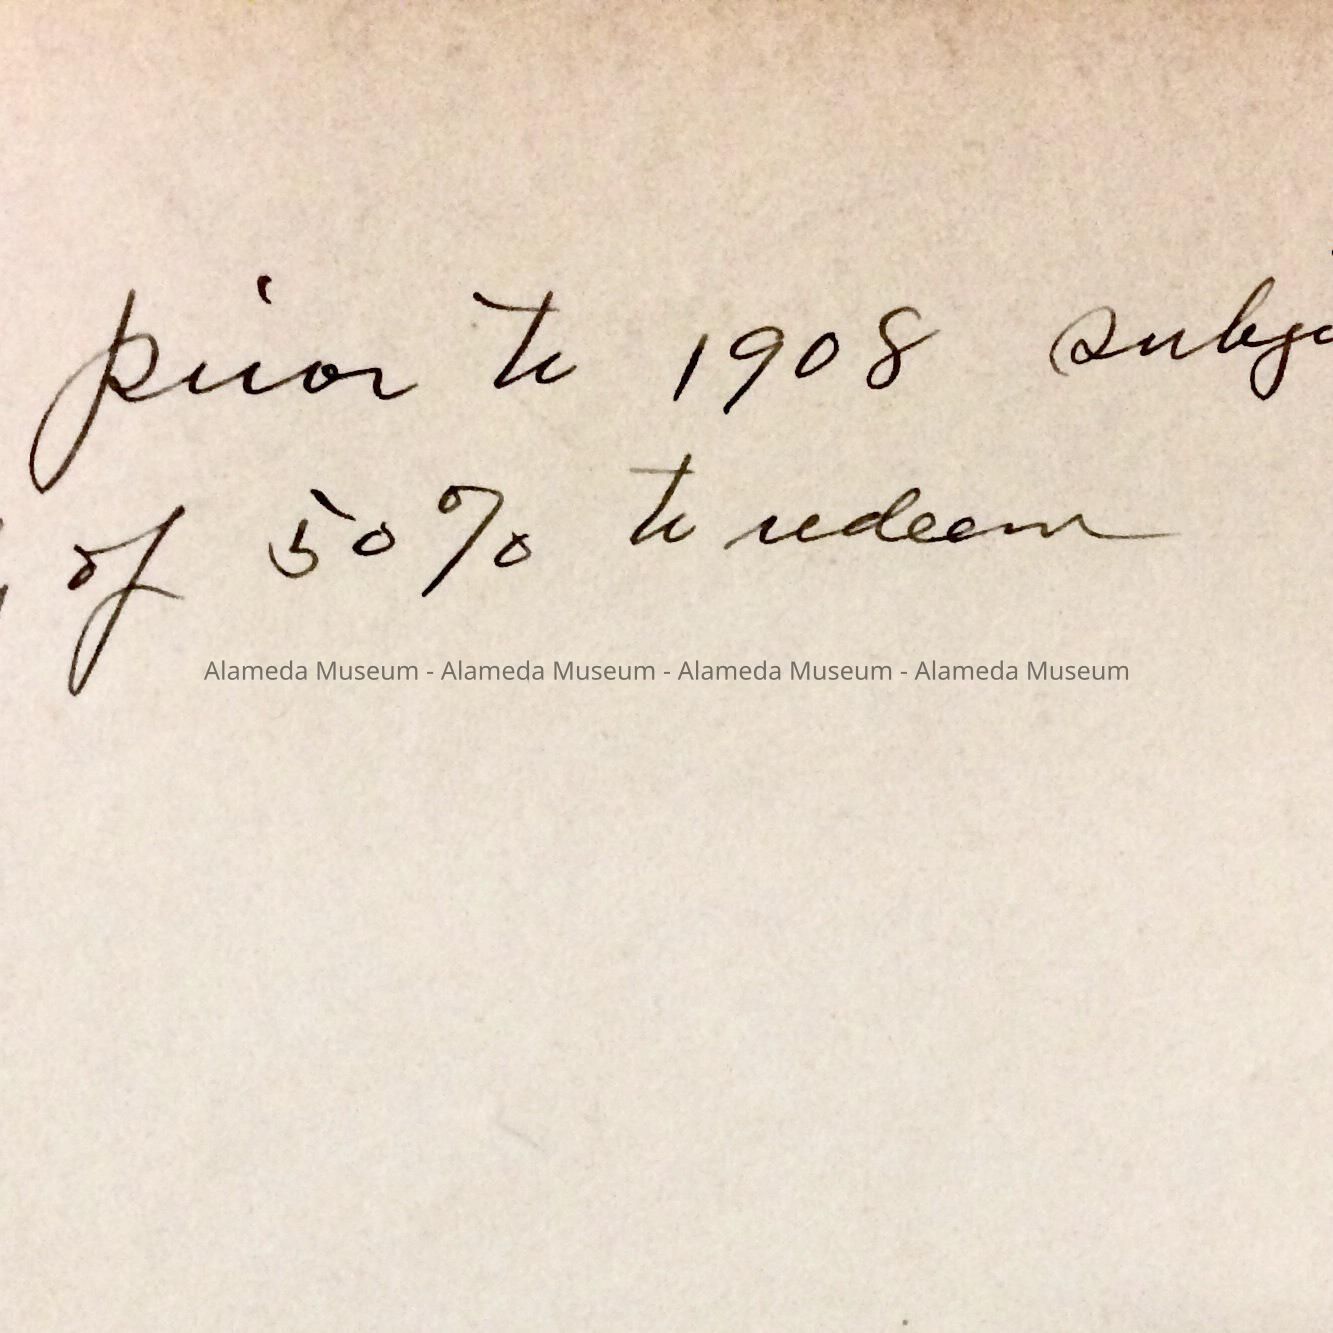 prior to 1908
of 50% to redeem
Alameda Museum - Alameda Museum - Alameda Museum - Alameda Museum